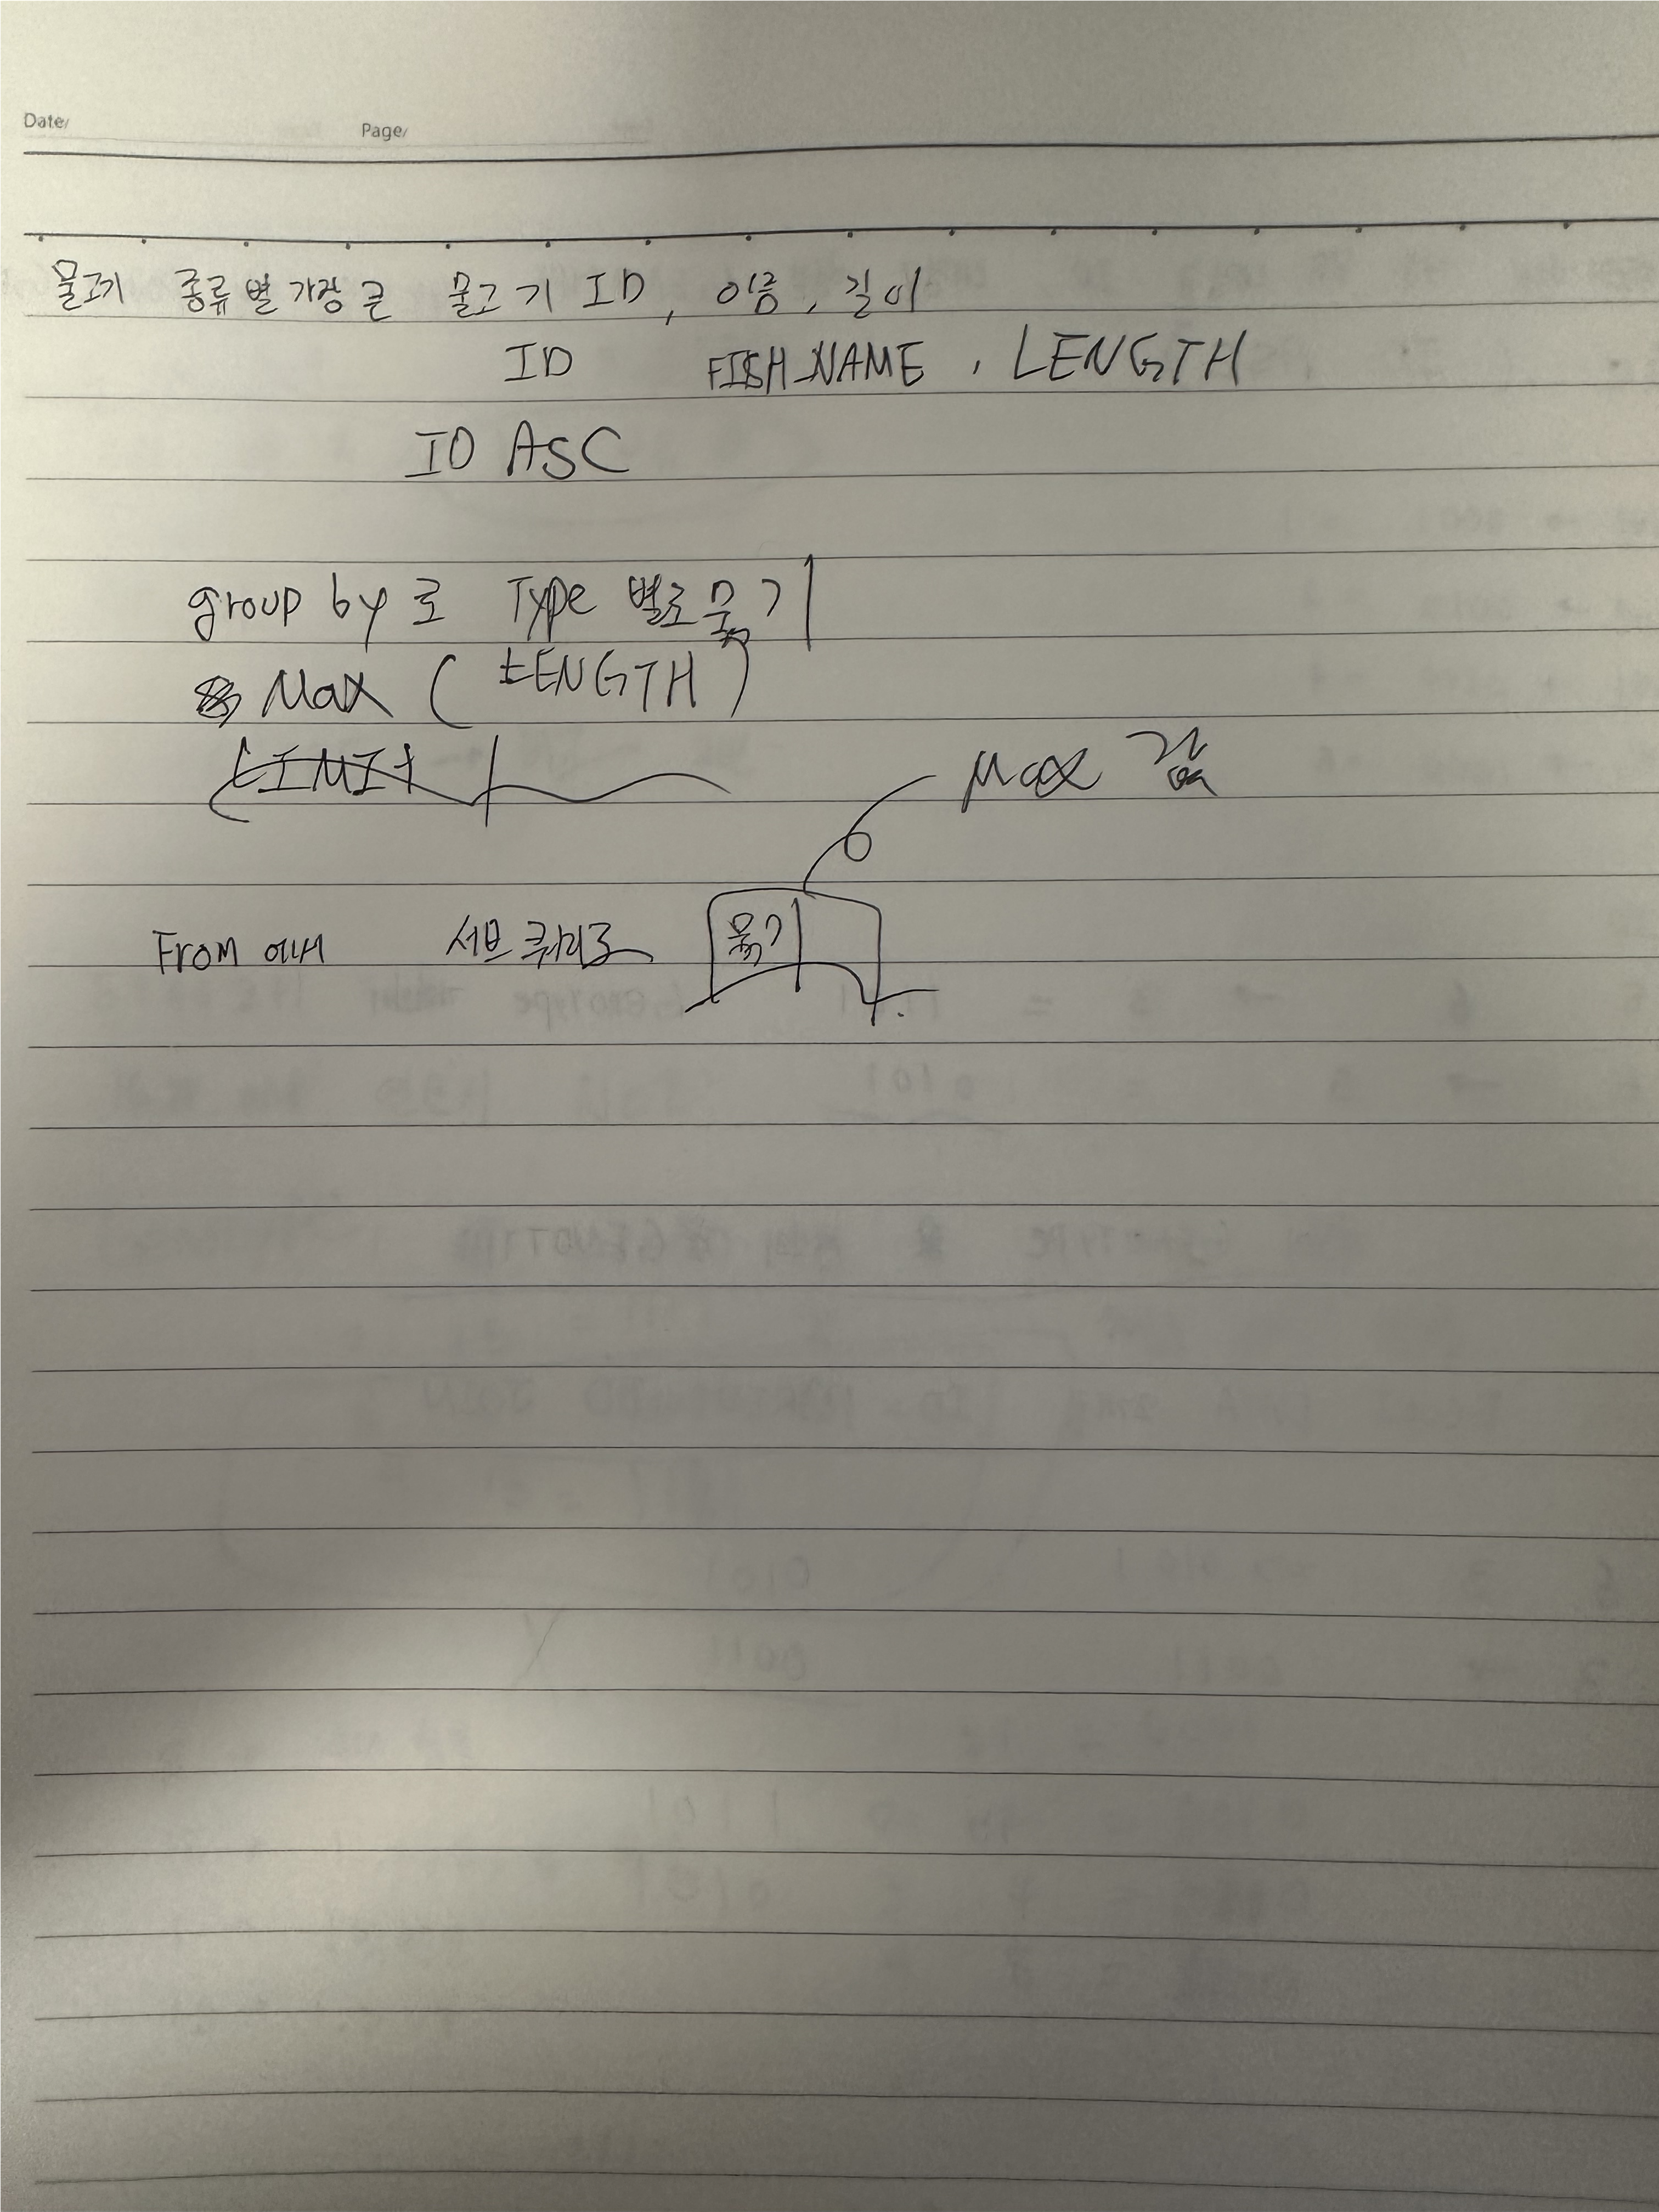 Date/ Page/
물고기 종류별 가장 큰 물고기 ID, 이름, 길이
ID FISH_NAME, LENGTH
ID ASC
group by로 Type 별로 묶기
Max (LENGTH)
LIMIT 1
Max 값
From 에서 서브쿼리로 묶기